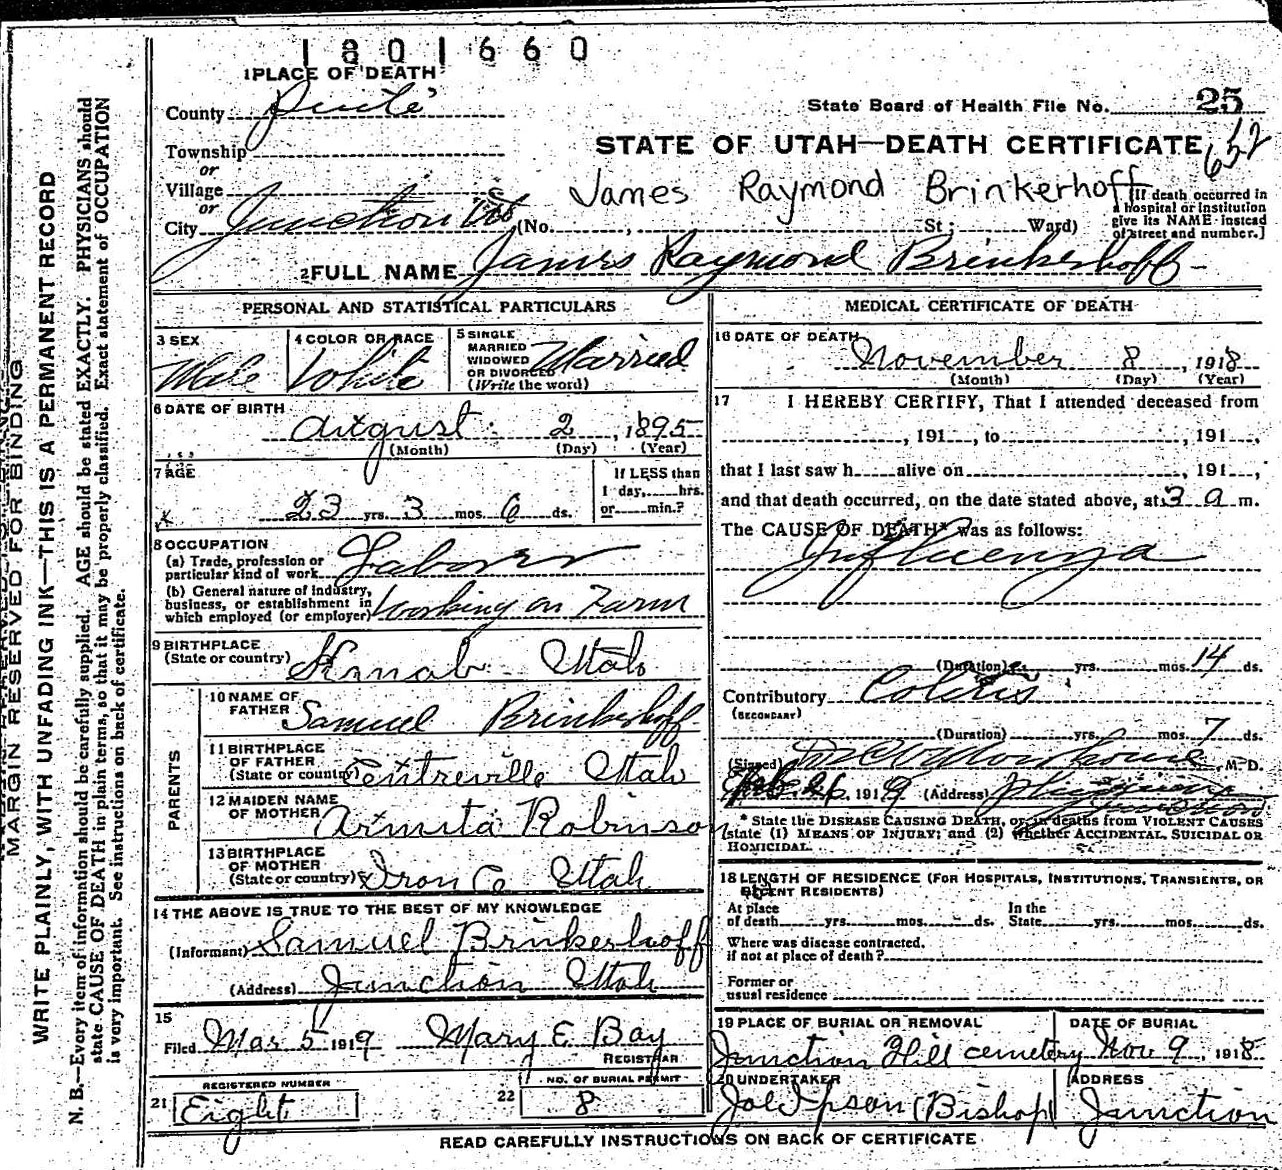 1801660
1 PLACE OF DEATH
County Piute
State Board of Health File No. 25
Township
or
STATE OF UTAH—DEATH CERTIFICATE 652
Village
or
James Raymond Brinkerhoff
City Junction Ut (No. , St ; Ward)
[If death occurred in
a hospital or institution
give its NAME instead
of street and number.]
2 FULL NAME James Raymond Brinkerhoff
PERSONAL AND STATISTICAL PARTICULARS
3 SEX
Male
4 COLOR OR RACE
White
5 SINGLE
MARRIED
WIDOWED
OR DIVORCED
(Write the word)
Married
6 DATE OF BIRTH
August 2, 1895
(Month) (Day) (Year)
7 AGE
23 yrs. 3 mos. 6 ds.
If LESS than
1 day, hrs.
or min.?
8 OCCUPATION
(a) Trade, profession or
particular kind of work Laborer
(b) General nature of industry,
business, or establishment in
which employed (or employer) Working on Farm
9 BIRTHPLACE
(State or country) Kanab Utah
PARENTS
10 NAME OF
FATHER Samuel Brinkerhoff
11 BIRTHPLACE
OF FATHER
(State or country) Centreville Utah
12 MAIDEN NAME
OF MOTHER Armita Robinson
13 BIRTHPLACE
OF MOTHER
(State or country) Iron Co Utah
14 THE ABOVE IS TRUE TO THE BEST OF MY KNOWLEDGE
(Informant) Samuel Brinkerhoff
(Address) Junction Utah
15
Filed Mar 5 1919 Mary E. Bay
REGISTRAR
REGISTERED NUMBER
21 Eight
NO. OF BURIAL PERMIT
22 8
MEDICAL CERTIFICATE OF DEATH
16 DATE OF DEATH
November 8, 1918
(Month) (Day) (Year)
17 I HEREBY CERTIFY, That I attended deceased from
, 191 , to , 191 ,
that I last saw h alive on , 191 ,
and that death occurred, on the date stated above, at 3 a m.
The CAUSE OF DEATH* was as follows:
Influenza
(Duration) yrs. mos. 14 ds.
Contributory Colitis
(SECONDARY)
(Duration) yrs. mos. 7 ds.
(Signed) M-D.
26, 1919 (Address) Junction
* State the DISEASE CAUSING DEATH, or, in deaths from VIOLENT CAUSES
state (1) MEANS OF INJURY; and (2) whether ACCIDENTAL, SUICIDAL OR
HOMICIDAL.
18 LENGTH OF RESIDENCE (FOR HOSPITALS, INSTITUTIONS, TRANSIENTS, OR
RECENT RESIDENTS)
At place
of death yrs. mos. ds.
In the
State yrs. mos. ds.
Where was disease contracted.
if not at place of death?
Former or
usual residence
19 PLACE OF BURIAL OR REMOVAL
Junction Hill cemetery
DATE OF BURIAL
Nov 9, 1918
20 UNDERTAKER
Joe Ipson (Bishop)
ADDRESS
Junction
READ CAREFULLY INSTRUCTIONS ON BACK OF CERTIFICATE
MARGIN RESERVED FOR BINDING
WRITE PLAINLY, WITH UNFADING INK—THIS IS A PERMANENT RECORD
N. B.—Every item of information should be carefully supplied. AGE should be stated EXACTLY. PHYSICIANS should
state CAUSE OF DEATH in plain terms, so that it may be properly classified. Exact statement of OCCUPATION
is very important. See instructions on back of certificate.